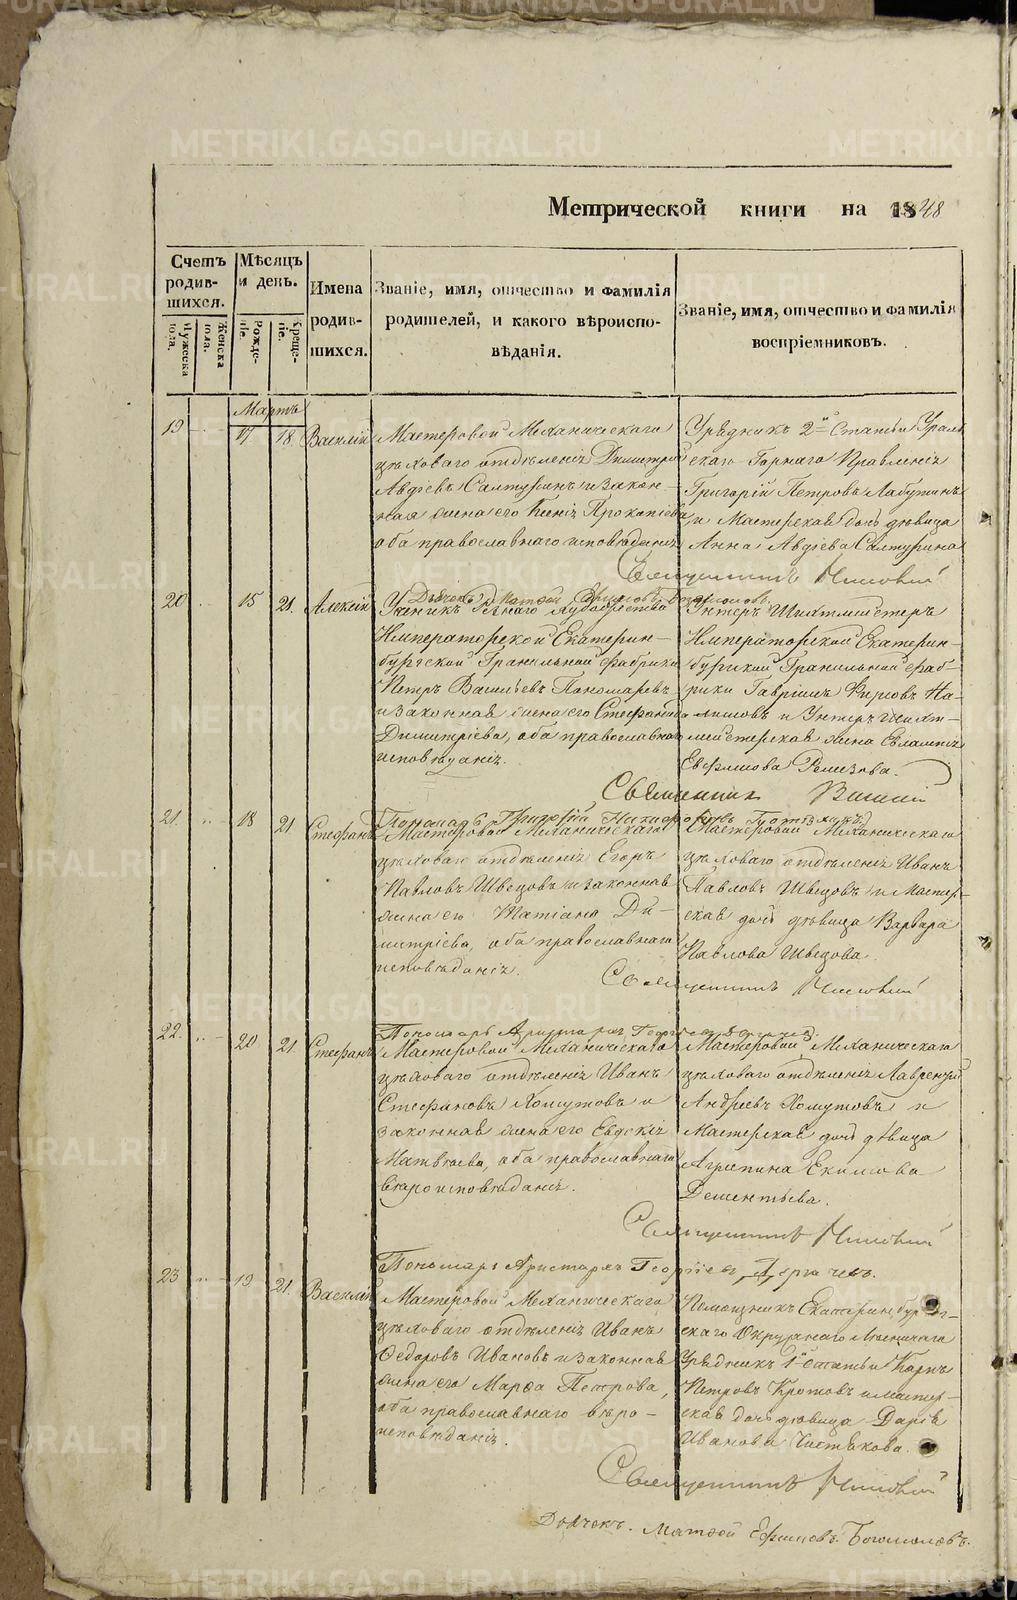 METRIKI.GASO-URAL.RU
Метрической книги на 1848
Счетъ родив-шихся.
Мужеска пола.
Женска пола.
Мѣсяцъ и день.
Рожде-ніе.
Креще-ніе.
Имена родив-шихся.
Званіе, имя, отчество и фамилія родителей, и какого вѣроиспо-вѣданія.
Званіе, имя, отчество и фамилія воспріемниковъ.
Мартъ
19 17 18 Василій
Мастеровой Механическаго
цѣховаго отдѣленія Димитрій
Авдѣевъ Салтуринъ и закон-
ная жена его Прокопіева
оба православнаго исповѣданія
Урядникъ 2й Статьи Ураль
скаго Горнаго Правленія
Григорій Петровъ Лабутинъ
и Мастерская дочь дѣвица
Анна Авдіева Салтурина
Священникъ
Дьячекъ Матѳей
20 15 21 Алексій
Ученикъ
Императорской Екатерин-
бургской Гранильной фабрики
Петръ Васильевъ Пономаревъ
и законная жена его Стефанида
Димитріева, оба православнаго
исповѣданія.
Унтеръ Шихтмейстеръ
Императорской Екатерин-
бургской Гранильной фаб-
рики Гавріилъ
и Унтеръ шихт-
мейстерская жена Евлампія
Ефимова Ремезова.
Священникъ
Григорій
21. 18 21 Стефанъ
Мастеровой Механическаго
цѣховаго отдѣленія Егоръ
Павловъ Швецовъ и законная
жена его Татіана Ди-
митріева, оба православнаго
исповѣданія.
Мастеровой Механическаго
цѣховаго отдѣленія Иванъ
Павловъ Швецовъ и Мастер-
ская дочь дѣвица Варвара
Павлова Швецова.
Священникъ
Пономарь Аристархъ Георгіевъ Дерягинъ.
22. 20 21. Стефанъ
Мастеровой Механическаго
цѣховаго отдѣленія Иванъ
Стефановъ Хомутовъ и
законная жена его Евдокія
Матвѣева, оба православнаго
вѣроисповѣданія.
Мастеровой Механическаго
цѣховаго отдѣленія Лаврентій
Андреевъ Хомутовъ и
Мастерская дочь дѣвица
Агрипина Екимова
Дементьева.
Священникъ
Пономарь Аристархъ Георгіевъ
23 19 21. Василій
Мастеровой Механическаго
цѣховаго отдѣленія Иванъ
Ѳедоровъ Ивановъ и законная
жена его Марѳа Петрова,
оба православнаго вѣро-
исповѣданія.
Помощникъ Екатеринбург-
скаго Окружнаго Лѣсничаго
Урядникъ 1й статьи Карпъ
Петровъ Кротовъ и мастер-
ская дочь дѣвица Дарія
Иванова Чистякова.
Священникъ
Дьячекъ. Матѳей Ефимовъ Богомоловъ.